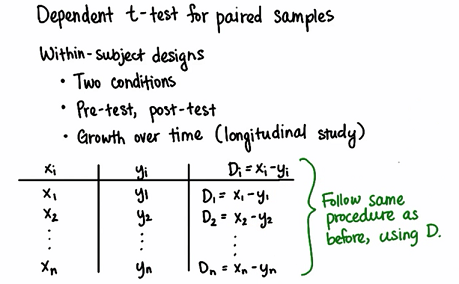 Dependent t-test for paired samples
Within-subject designs
• Two conditions
• Pre-test, post-test
• Growth over time (longitudinal study)
xᵢ yᵢ Dᵢ = xᵢ-yᵢ
x₁ y₁ D₁ = x₁-y₁
x₂ y₂ D₂ = x₂-y₂
⋮ ⋮ ⋮
xₙ yₙ Dₙ = xₙ-yₙ
Follow same
procedure as
before, using D.